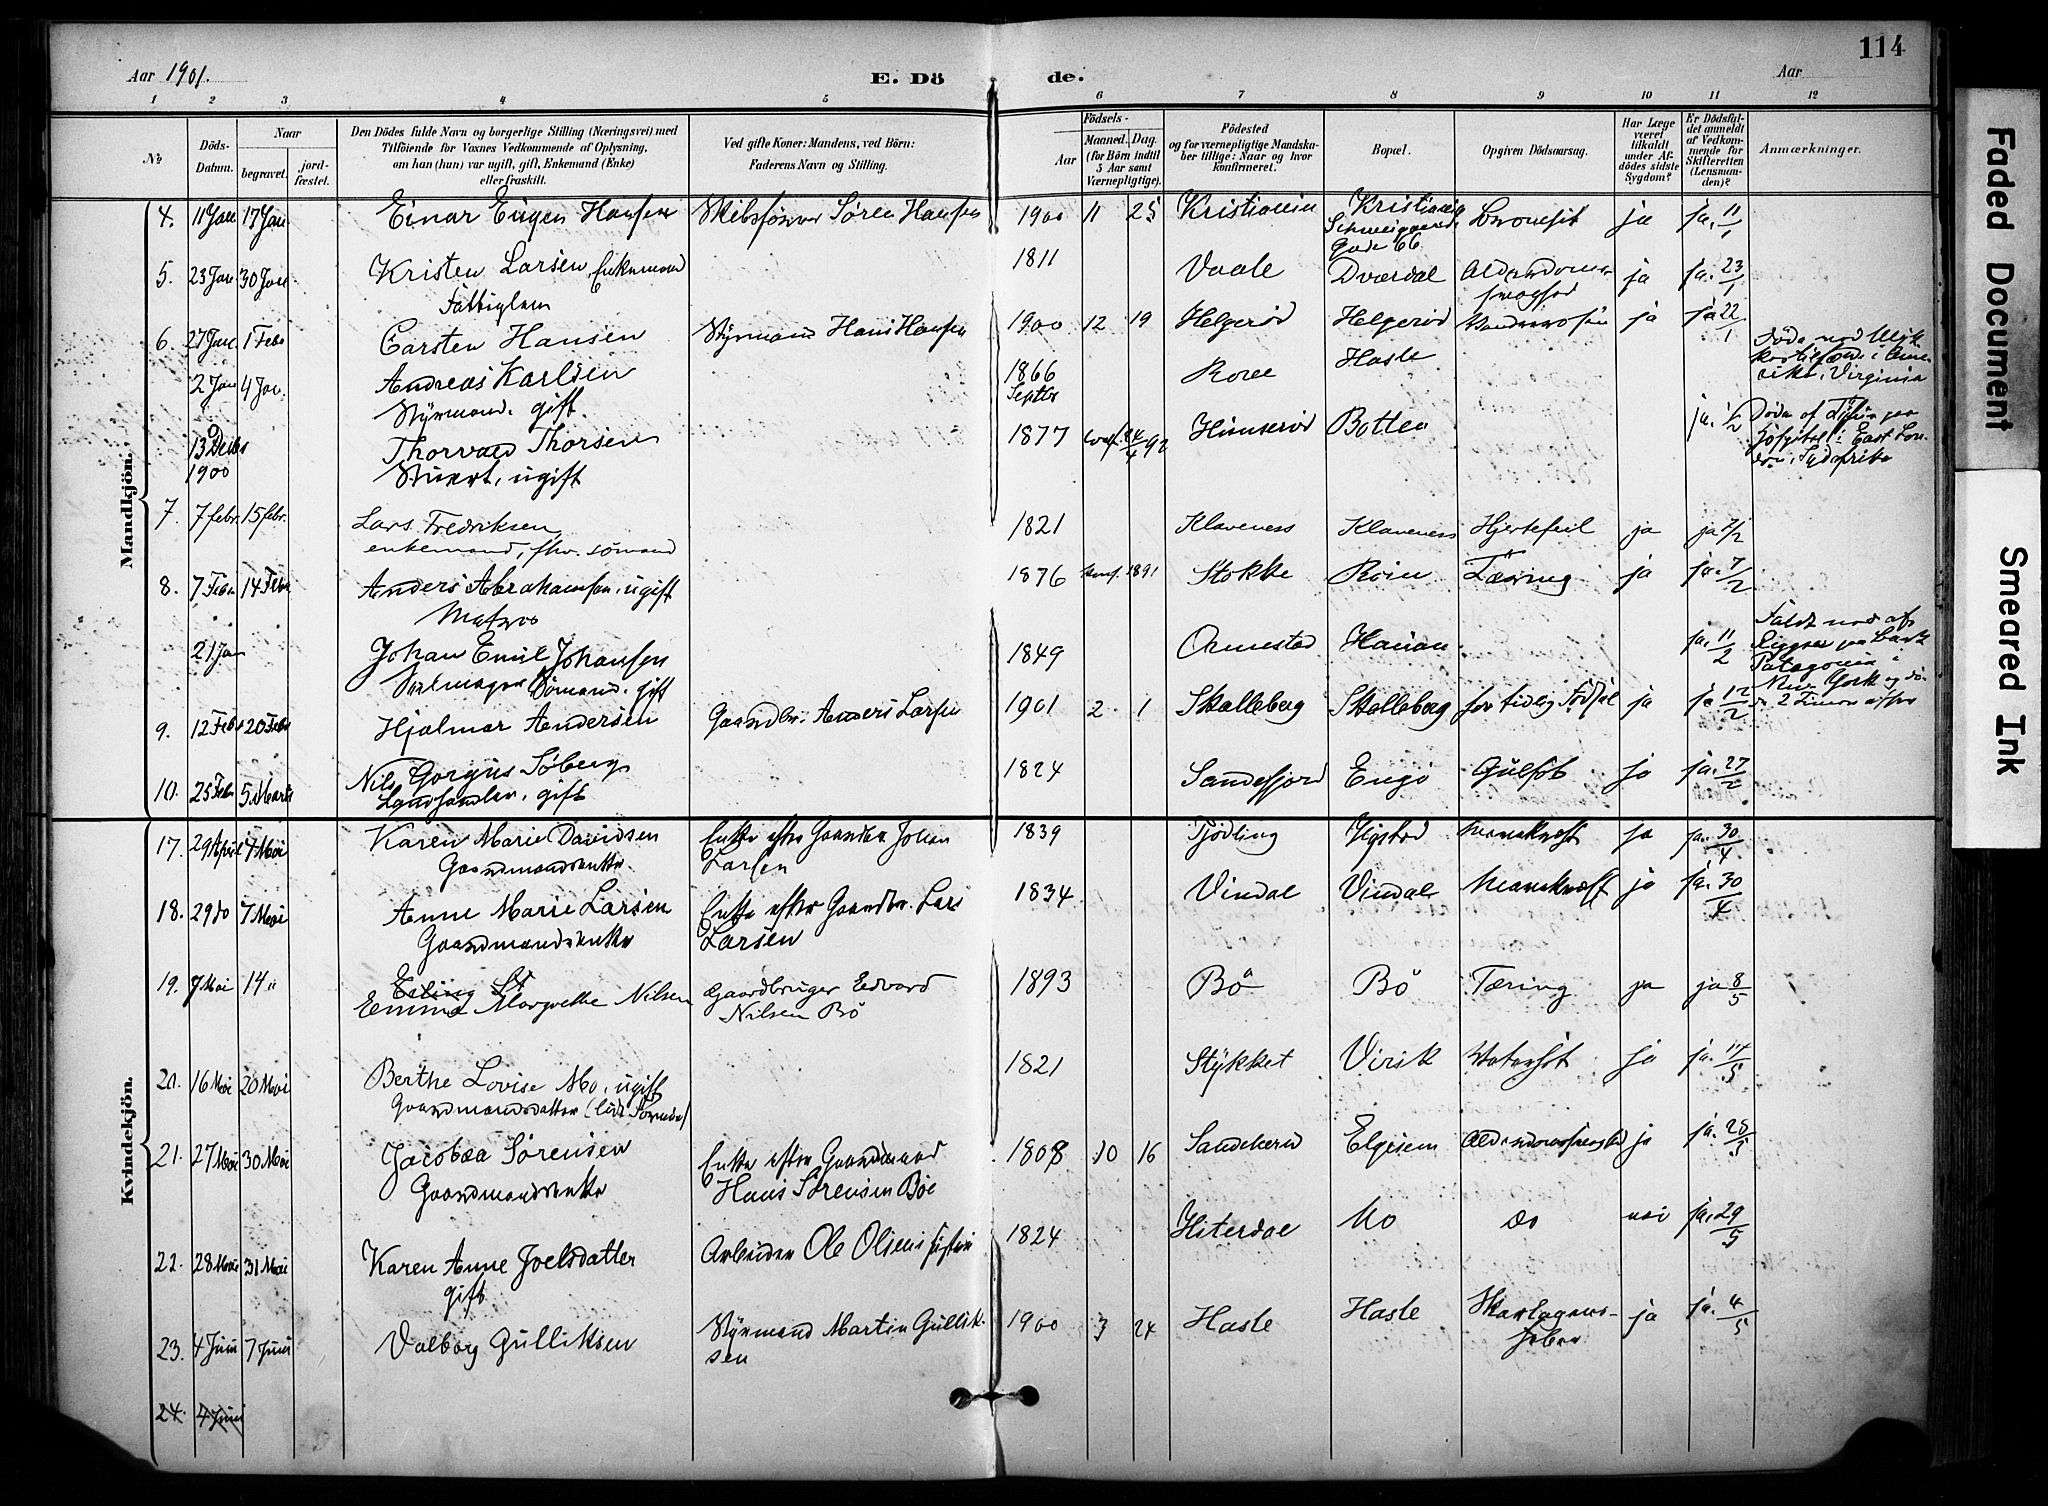 114
Aar 1901.
E. Dö de.
Aar
1 2 3 4 5 6 7 8 9 10 11 12
No
Döds-Datum.
Naar begravet. jordfæstet.
Den Dödes fulde Navn og borgerlige Stilling (Næringsvei) med Tilföiende for Voxnes Vedkommende af Oplysning, om han (hun) var ugift, gift, Enkemand (Enke) eller fraskilt.
Ved gifte Koner: Mandens, ved Börn: Faderens Navn og Stilling.
Födsels-
Aar Maaned. Dag. (for Börn indtil 5 Aar samt Værnepligtige).
Födested og for værnepligtige Mandskaber tillige: Naar og hvor konfirmeret.
Bopæl.
Opgiven Dödsaarsag.
Har Læge været tilkaldt under Afdödes sidste Sygdom?
Er Dödsfaldet anmeldt af Vedkommende for Skifteretten (Lensmanden)?
Anmærkninger.
Mandkjön.
4. 11 Jan 17 Jan Einar Eugen Hansen Skibsfører Søren Hansen 1900 11 25 Kristiania Kristiania Schweigaards Gade 66 ja ja. 11/1
5. 23 Jan 30 Jan Kristen Larsen, Enkemand 1811 Vaale Dverdal ja ja. 23/1
Fattiglem
6. 27 Jan 1 Feb Carsten Hansen Styrmand Hans Hansen 1900 12 19 Helgerød Helgerød ja ja 22/1
2 Jan 4 Jan. Andreas Karlsen 1866 Septbr Hasle Virginia
Styrmand. gift.
13 Decbr 1900 Thorvald Thorsen 1877 konf. 24/4 92 Himserød Botten ja. 1/2
Stuert, ugift
7. 7 febr. 15 febr. Lars Fredriksen, 1821 Klaveness Klaveness Hjertefeil ja ja 7/2
enkemand, fhv. sømand
8. 7 Febr 14 Febr Anders Abrahamsen, ugift 1876 konf. 1891 Stokke Røien Tæring ja ja. 7/2
Matros
21 Jan Johan Emil Johansen 1849 Ormestad Hauan ja. 11/2
Seilmager Sømand. gift
Faldt ned af Riggen paa Bark Patagonia i New York og 2 Timer efter
9. 12 Febr 20 Febr Hjalmar Andersen Gaardbr. Anders Larsen 1901 2 1 Skalleberg Skalleberg for tidlig Fødsel ja ja 12/2
10. 25 Feb 5 Marts Nils Gorgus Søberg 1824 Sandefjord Engø Gulsot ja ja. 27/2
Landhandler. gift
Kvindekjön.
17. 29 April 7 Mai Karen Marie Davidsen Enke efter Gaardbr Johan Larsen 1839 Tjødling Vegstad ja ja. 30/4
Gaardmandsenke
18. 29 do 7 Mai Anne Marie Larsen Enke efter Gaardbr. Lars Larsen 1834 Vindal Vindal ja ja. 30/4
Gaardmandsenke
19. 7 Mai 14 " Emma Margrethe Nilsen Gaardbruger Edvard Nilsen Bö 1893 Bö Bö Tæring ja ja 8/5
20. 16 Mai 20 Mai Berthe Lovise Mo, ugift 1821 Stykket Virik Vatersot ja ja. 17/5
Gaardmandsdatter
21. 27 Mai 30 Mai Jacobea Sørensen Enke efter Gaardmand Hans Sørensen Bøe 1808 10 16 Sandeherred Elgesem ja ja. 28/5
Gaardmandsenke
22. 28 Mai 31 Mai Karen Anne Joelsdatter Arbeider Ole Olsens hustru 1824 Hiterdal Mo do nei ja. 29/5
gift
23. 4 Juni 7 Juni Valborg Gulliksen Styrmand Martin Gulliksen 1900 3 24 Hasle Hasle Skarlagensfeber ja ja. 4/5
24. 4 Juni
Faded Document
Smeared Ink